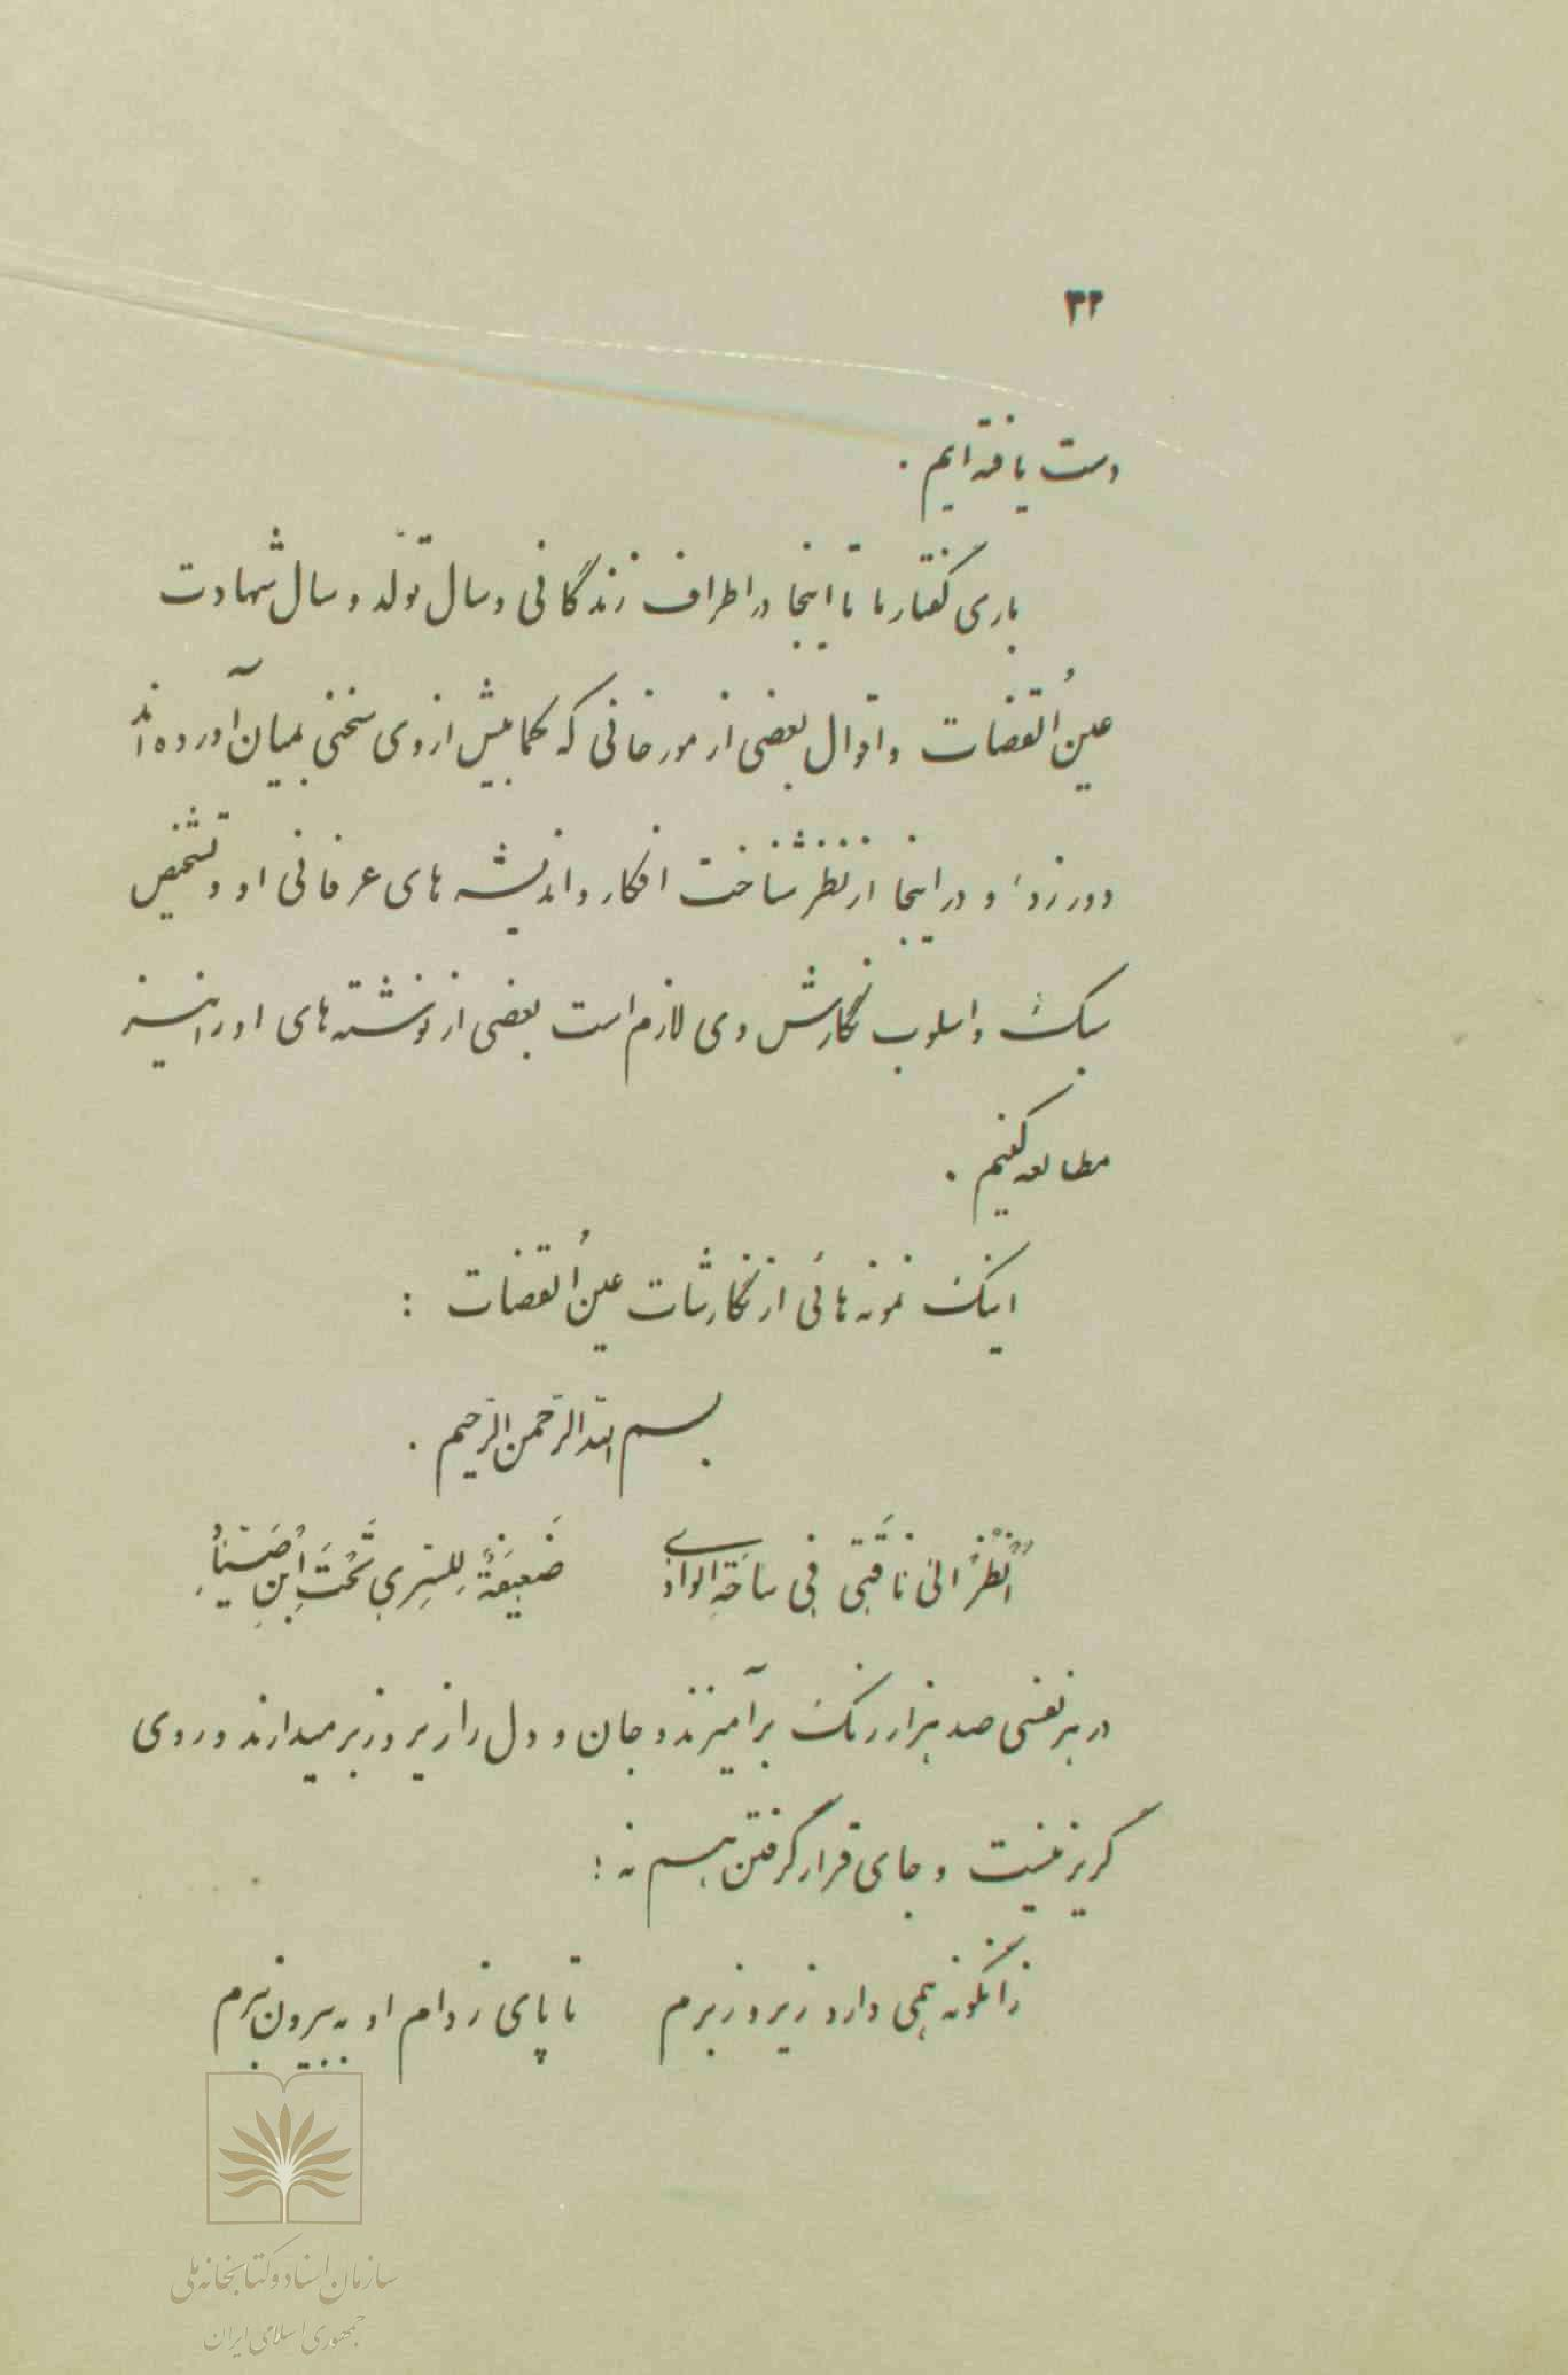 ۳۲
دست یافته ایم .
باری گفتار ما تا اینجا در اطراف زندگانی و سال تولّد و سال شهادت
عینُ القضات و اقوال بعضی از مورخانی که کمابیش از وی سخنی بمیان آورده اند
دور زد، و در اینجا از نظر شناخت افکار و اندیشه های عرفانی او و تشخیص
سبک و اسلوب نگارش وی لازم است بعضی از نوشته های او را نیز
مطالعه کنیم .
اینک نمونه هائی از نگارشات عینُ القضات :
بسم الله الرحمن الرحیم .
اُنْظُرْ الی ناقَتی فِی ساحَةِ الوادی ضَعیفَةٌ لِلسّری تَحْتَ اِبنِ
در هر نفسی صد هزار رنگ برآمیزند و جان و دل را زیر و زبر میدارند و روی
گریز نیست و جای قرار گرفتن هم نه :
زانگونه همی دارد زیر و زبرم تا پای ز دام او به بیرون نبرم
سازمان اسناد و کتابخانه ملی
جمهوری اسلامی ایران